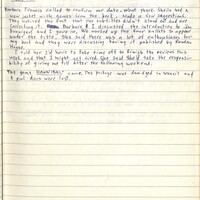 Barbara Francis called to confirm our date. About three. She'd a
new jacket with quotes from the book. Made a few suggestions.
They noticed too that the subtitles didn't stand out and are
correcting it. Barbara & I discussed the introduction to Jim
and I gave in. We worked up two bullets to appear
under the title. She said there was a lot of enthusiasm for
my book and they were discussing having it published by Random
House.
I told her I'd have to take time off to finish the reviews this
week and that I might get tired. She said she'd take the respon-
sibility of giving me till after the following weekend.
The game HANNIBAL came. The package was damaged in transit and
a few dice were lost.